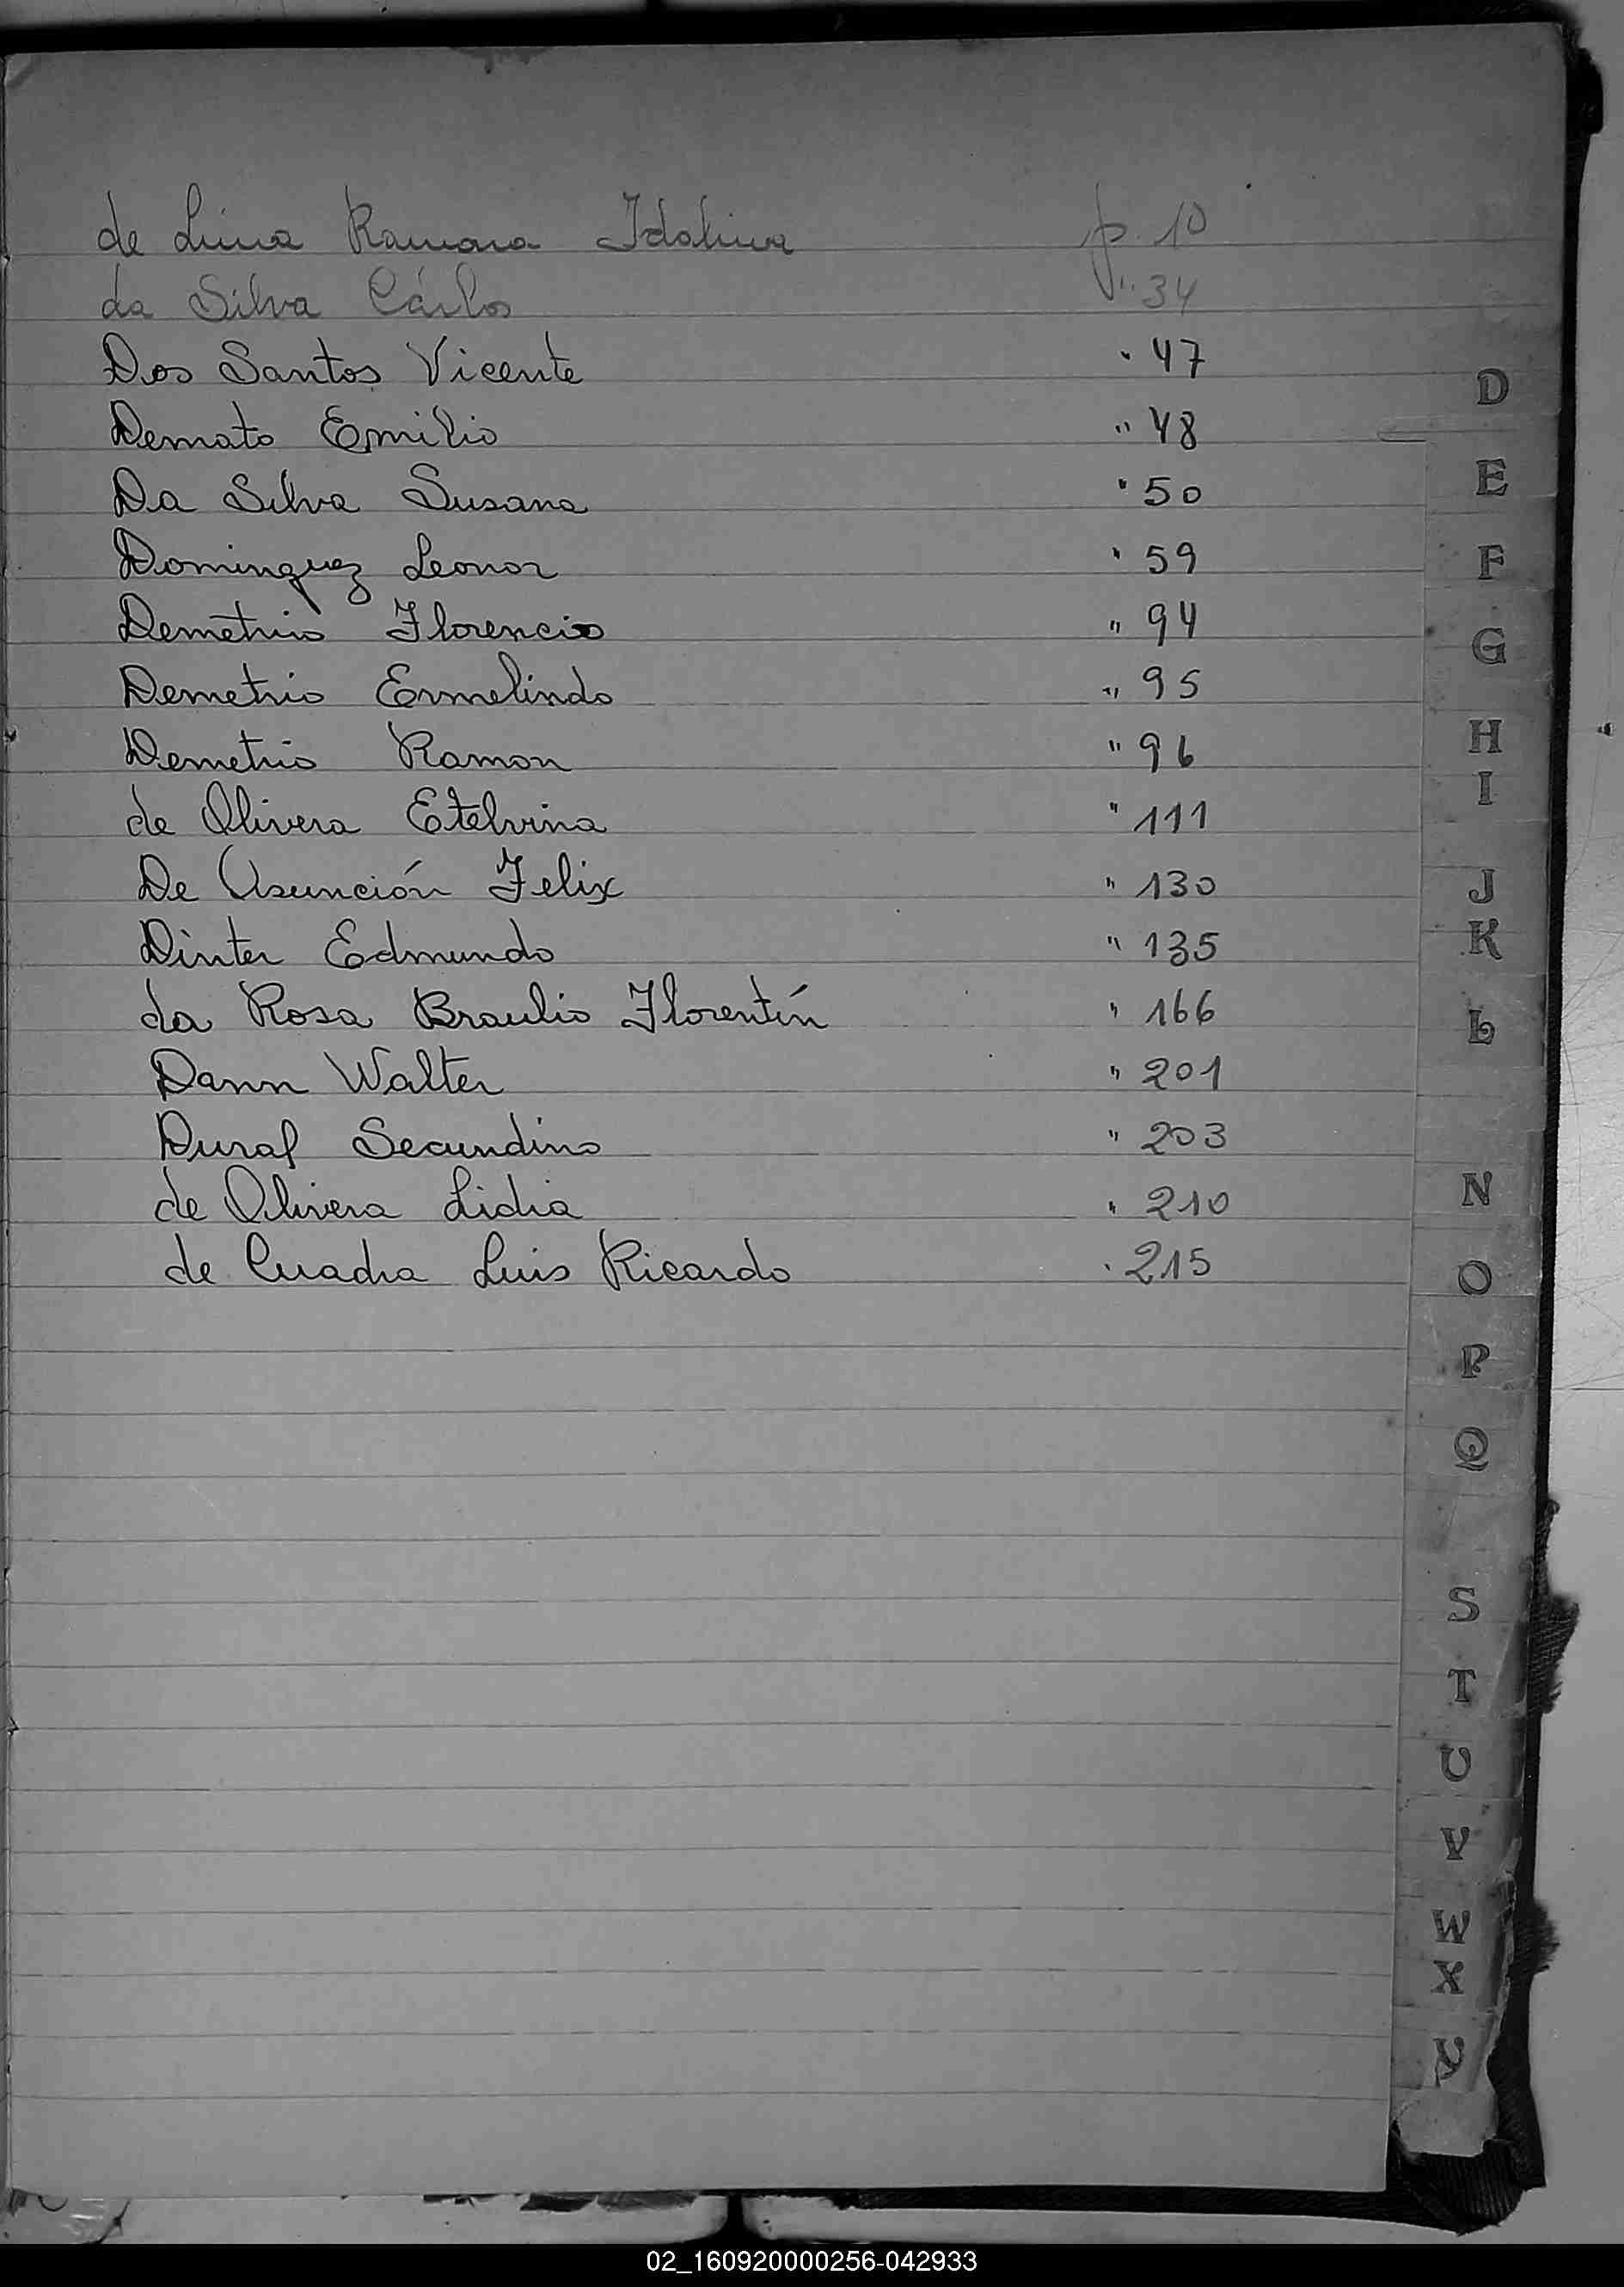 de Lima Ramona Idalina p. 10
da Silva Cárlos " 34
Dos Santos Vicente " 47
Demato Emilio " 48
Da Silva Susana " 50
Dominguez Leonor " 59
Demetrio Florencio " 94
Demetrio Ermelindo " 95
Demetrio Ramon " 96
de Olivera Etelvina " 111
De Asunción Felix " 130
Dinter Edmundo " 135
da Rosa Braulio Florentín " 166
Dann Walter " 201
Secundino " 203
de Olivera Lidia " 210
de Cuadra Luis Ricardo " 215
D
E
F
G
H
I
J
K
L
N
O
P
Q
S
T
U
V
W
X
Y
02_160920000256-042933